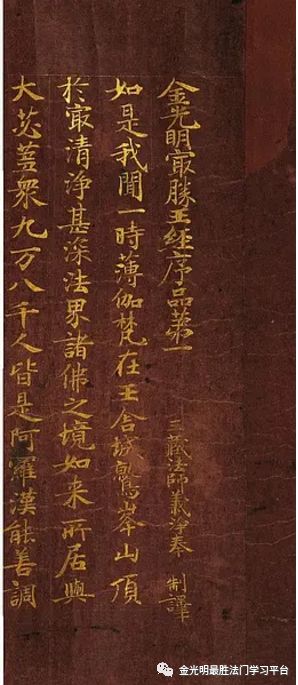 金光明冣勝王經序品苐一
三藏法師義淨奉 制譯
如是我聞一時薄伽梵在王舍城鷲峯山頂
於冣清淨甚深法界諸佛之境如来所居與
大苾蒭衆九万八千人皆是阿羅漢能善調
金光明最胜法门学习平台